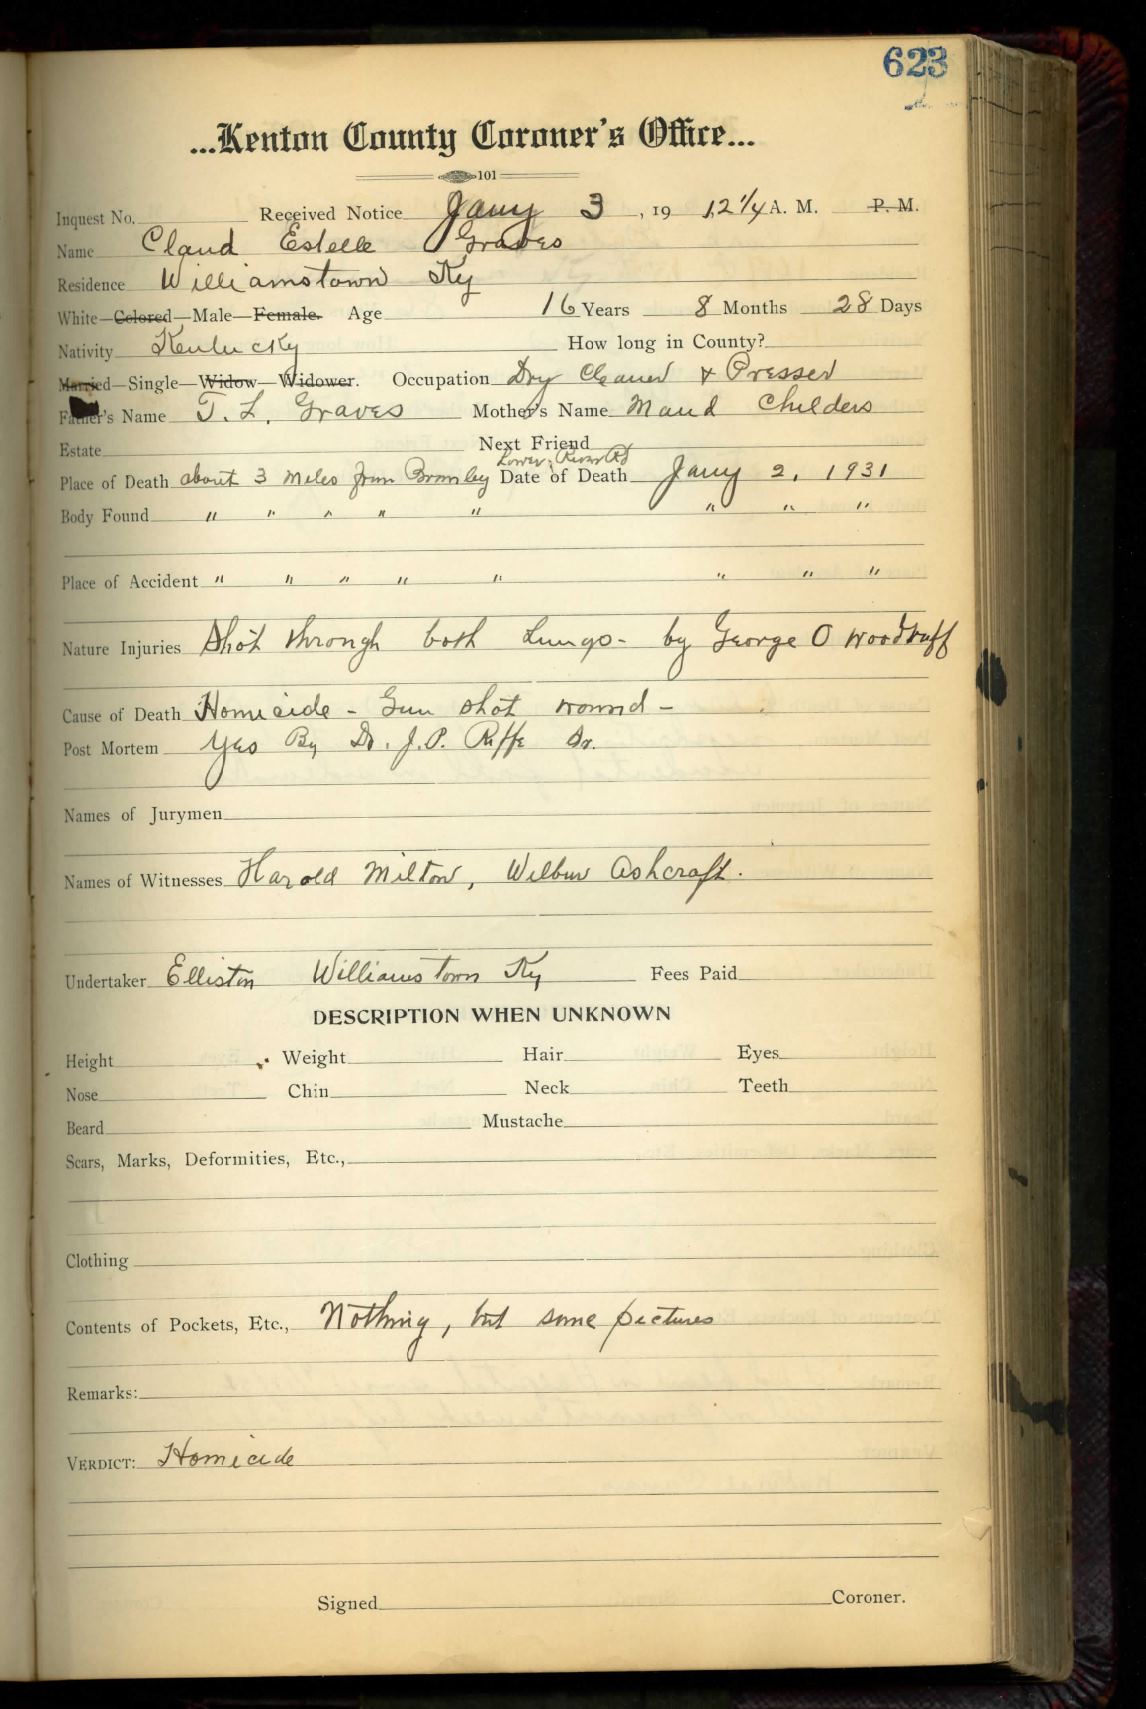 623
...Kenton County Coroner's Office...
101
Inquest No. Received Notice Jany 3, 19 12¼ A. M. P. M.
Name Claud Estelle Graves
Residence Williamstown Ky
White—Colored—Male—Female. Age 16 Years 8 Months 28 Days
Nativity Kentucky How long in County?
Married—Single—Widow—Widower. Occupation Dry Cleaner & Presser
Father's Name T. L. Graves Mother's Name Maud Childers
Estate Next Friend
Lower River Rd
Place of Death about 3 miles from Bromley Date of Death Jany 2, 1931
Body Found " " " " " " " "
Place of Accident " " " " " " " "
Nature Injuries Shot through both Lungs - by George O Woodruff
Cause of Death Homicide - Gun shot wound -
Post Mortem Yes By Dr. J. P. Riffe Sr.
Names of Jurymen
Names of Witnesses Harold Milton, Wilbur Ashcraft.
Undertaker Elliston Williamstown Ky Fees Paid
DESCRIPTION WHEN UNKNOWN
Height Weight Hair Eyes
Nose Chin Neck Teeth
Beard Mustache
Scars, Marks, Deformities, Etc.,
Clothing
Contents of Pockets, Etc., Nothing, but some pictures
Remarks:
VERDICT: Homicide
Signed Coroner.